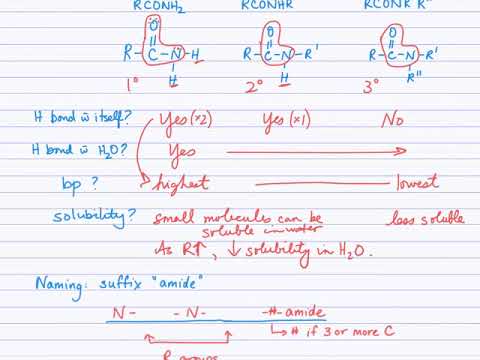 RCONH₂ RCONHR RCONR'R"
O O O
R-C-N-H R-C-N-R' R-C-N-R'
H H R"
1° 2° 3°
H bond w̄ itself? Yes (×2) Yes (×1) No
H bond w̄ H₂O? Yes
bp ? highest lowest
solubility? small molecules can be less soluble
soluble in water
As R↑, ↓ solubility in H₂O.
Naming: suffix "amide"
N- -N- -#-amide
# if 3 or more C
R groups